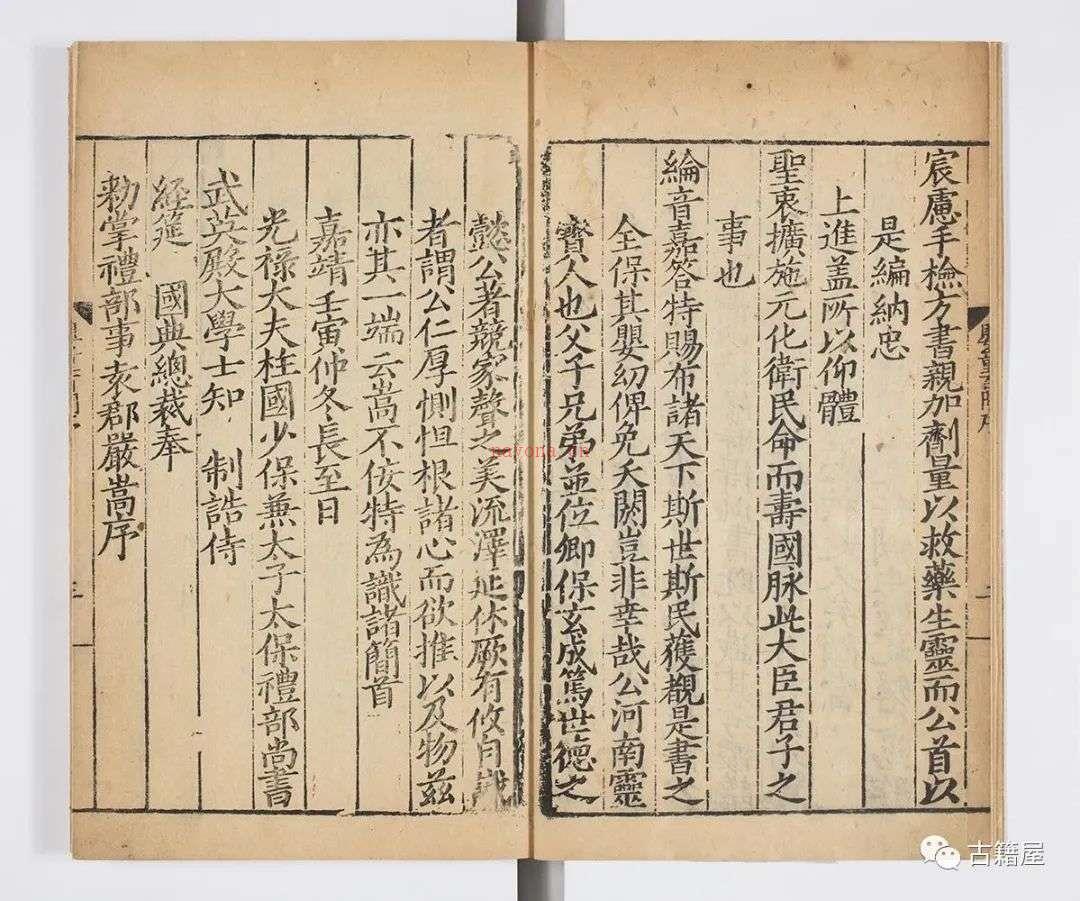 宸慮手檢方書親加劑量以救藥生靈而公首以
是編納忠
上進盖所以仰體
聖衷擴施元化衛民命而壽國脉此大臣君子之
事也
綸音嘉答特賜布諸天下斯世斯民獲覩是書之
全保其嬰幼俾免夭閼豈非幸哉公河南靈
寳人也父子兄弟並位卿保玄成篤世德之
懿公著競家聲之美流澤延休厥有攸自哉
者謂公仁厚惻怛根諸心而欲推以及物兹
亦其一端云嵩不佞特為識諸簡首
嘉靖壬寅仲冬長至日
光祿大夫柱國少保兼太子太保禮部尚書
武英殿大學士知 制誥侍
經筵 國典總裁奉
勑掌禮部事袁郡嚴嵩序
二
三
navona.cn
古籍屋